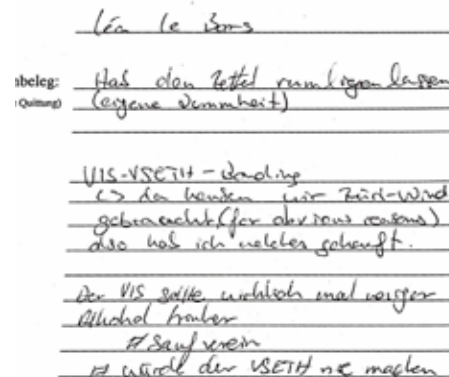 Léa le Bons
nbeleg: Hab den Zettel rumligen lassen
Quittung) (eigene Dummheit)
VIS-VSETH-Bonding
↳ da haben wir Züri-Wind
gebraucht (for obvious reasons)
also hab ich welchen gekauft.
Der VIS sollte wirklich mal weniger
Alkohol trinken
#Saufverein
# würde der VSETH nie machen